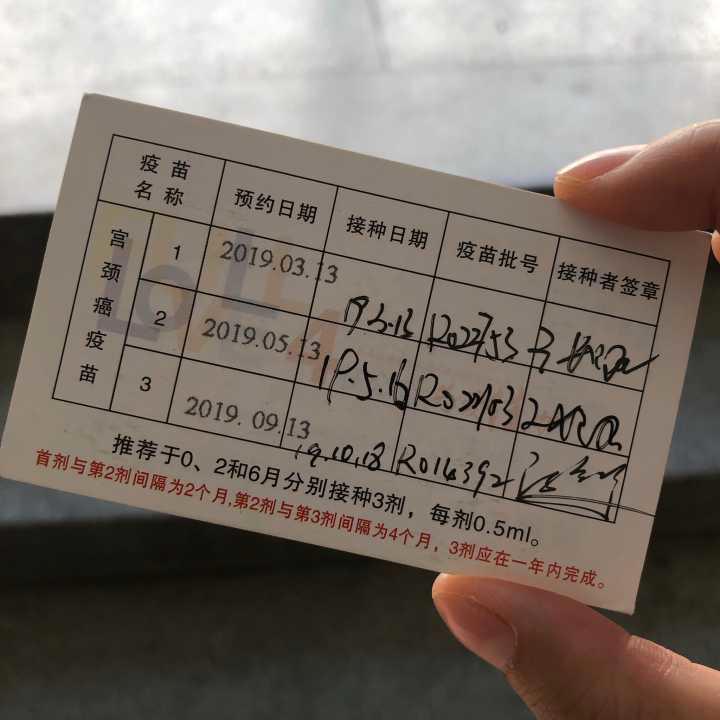 疫苗名称 预约日期 接种日期 疫苗批号 接种者签章
宫颈癌疫苗
1 2019.03.13 19.3.13 R022753
2 2019.05.13 19.5.16
3 2019.09.13 19.10.18 R014392
推荐于0、2和6月分别接种3剂，每剂0.5ml。
首剂与第2剂间隔为2个月,第2剂与第3剂间隔为4个月，3剂应在一年内完成。